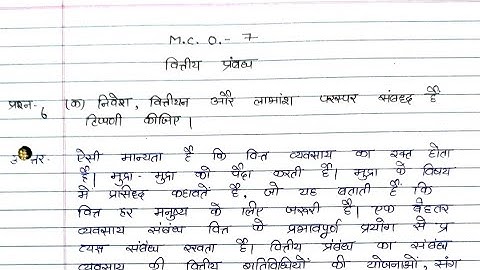 M.C.O.- 7
वित्तीय प्रबंध
प्रश्न- 6 (क) निवेश, वित्तीयन और लाभांश परस्पर संबद्ध हैं
टिप्पणी कीजिए।
उत्तर- ऐसी मान्यता है कि वित्त व्यवसाय का रक्त होता
है। मुद्रा- मुद्रा को पैदा करती है। मुद्रा के विषय
मे प्रसिद्द कहावतें हैं, जो यह बताती हैं कि
वित्त हर मनुष्य के लिए जरूरी है। एक बेहतर
व्यवसाय संबंध वित्त के प्रभावपूर्ण प्रयोग से प्र
त्यक्ष संबंध रखता है। वित्तीय प्रबंध का संबंध
व्यवसाय की वित्तीय गतिविधियों की योजनाओं, संग